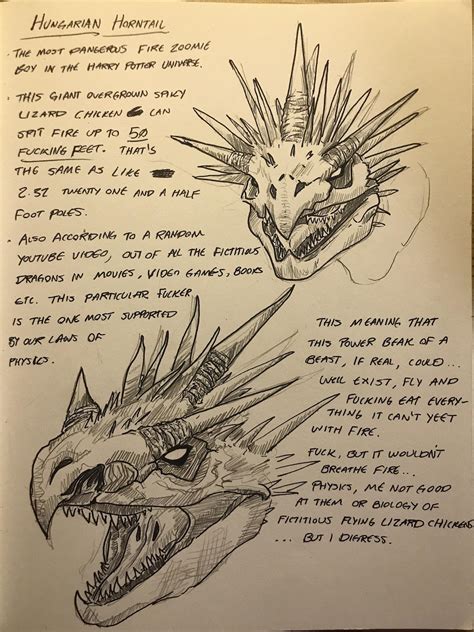 HUNGARIAN HORNTAIL
· THE MOST DANGEROUS FIRE ZOOMIE
BOY IN THE HARRY POTTER UNIVERSE.
· THIS GIANT OVERGROWN SPIKY
LIZARD CHICKEN CAN
SPIT FIRE UP TO 50
FUCKING FEET. THAT'S
THE SAME AS LIKE
2.32 TWENTY ONE AND A HALF
FOOT POLES.
· ALSO ACCORDING TO A RANDOM
YOUTUBE VIDEO, OUT OF ALL THE FICTITIOUS
DRAGONS IN MOVIES, VIDEO GAMES, BOOKS
ETC. THIS PARTICULAR FUCKER
IS THE ONE MOST SUPPORTED
BY OUR LAWS OF
PHYSICS.
THIS MEANING THAT
THIS POWER BEAK OF A
BEAST, IF REAL, COULD...
WELL EXIST, FLY AND
FUCKING EAT EVERY-
THING IT CAN'T YEET
WITH FIRE.
FUCK, BUT IT WOULDN'T
BREATHE FIRE...
PHYSICS, ME NOT GOOD
AT THEM OR BIOLOGY OF
FICTITIOUS FLYING LIZARD CHICKENS
... BUT I DIGRESS.